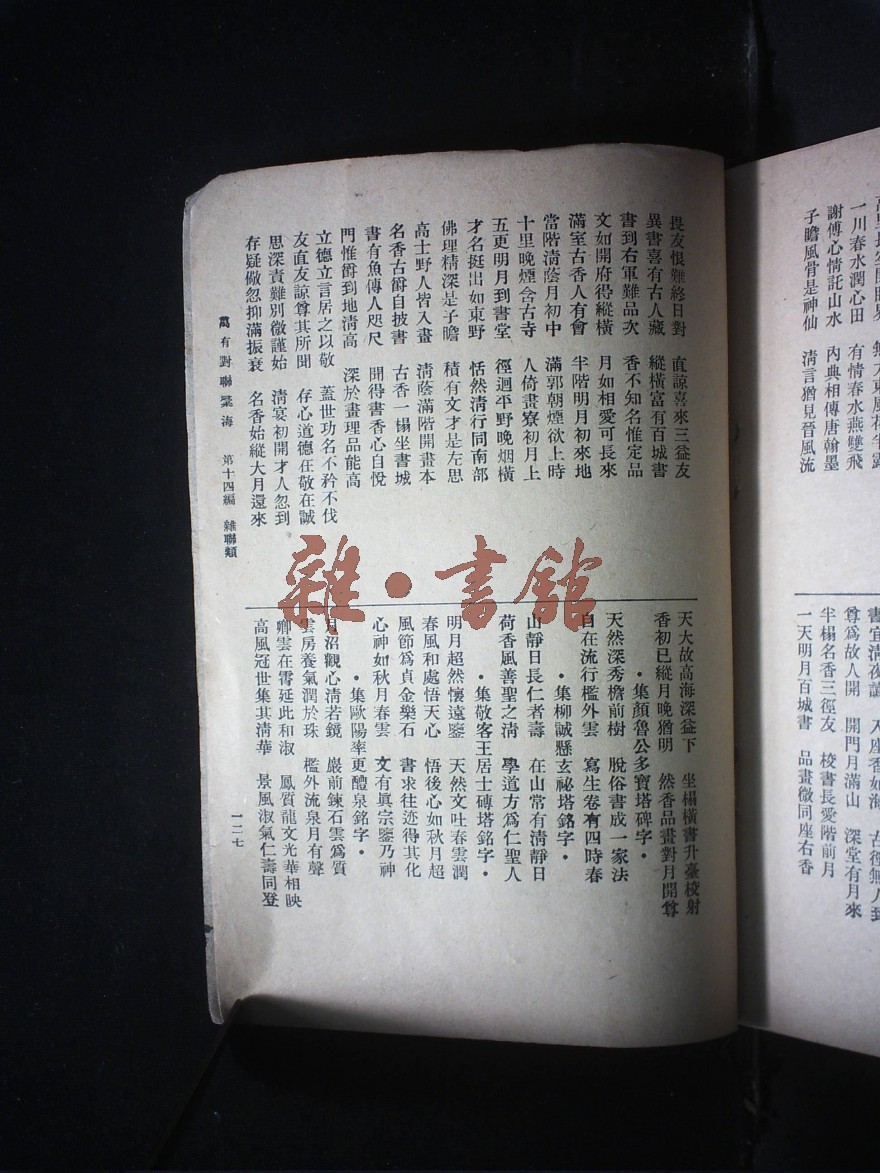 一川春水潤心田　有情春水燕雙飛
謝傅心情託山水　內典相傳唐翰墨
子瞻風骨是神仙　清言猶見晉風流
書宜清夜讀　入座香如海　古徑無人到
尊爲故人開　開門月滿山　深堂有月來
半榻名香三徑友　校書長愛階前月
一天明月百城書　品畫微同座右香
畏友恨難終日對　直諒喜來三益友
異書喜有古人藏　縱橫富有百城書
書到右軍難品次　香不知名惟定品
文如開府得縱橫　月如相愛可長來
滿室古香人有會　半階明月初來地
當階清蔭月初中　滿郭朝煙欲上時
十里晚煙含古寺　人倚畫寮初月上
五更明月到書堂　徑迴平野晚烟橫
才名挺出如東野　恬然清行同南部
佛理精深是子瞻　積有文才是左思
高士野人皆入畫　清蔭滿階開畫本
名香古爵自披書　古香一榻坐書城
書有魚傳人咫尺　聞得書香心自悅
門惟爵到地清高　深於畫理品能高
立德立言居之以敬　蓋世功名不矜不伐
友直友諒尊其所聞　存心道德在敬在誠
思深責難別微謹始　清宴初開才人忽到
存疑儆忽抑滿振衰　名香始縱大月還來
天大故高海深益下　坐榻橫書升臺校射
香初已縱月晚猶明　然香品畫對月開尊
・集顏魯公多寶塔碑字・
天然深秀檐前樹　脫俗書成一家法
自在流行檻外雲　寫生卷有四時春
・集柳誠懸玄祕塔銘字・
山靜日長仁者壽　在山常有清靜日
荷香風善聖之清　學道方爲仁聖人
・集敬客王居士磚塔銘字・
明月超然懷遠鑒　天然文吐春雲潤
春風和處悟天心　悟後心如秋月超
風節爲貞金樂石　書求往迹得其化
心神如秋月春雲　文有眞宗鑒乃神
・集歐陽率更醴泉銘字・
月沼觀心清若鏡　巖前鍊石雲爲質
雲房養氣潤於珠　檻外流泉月有聲
卿雲在霄延此和淑　鳳質龍文光華相映
高風冠世集其清華　景風淑氣仁壽同登
萬有對聯彙海　第十四編　雜聯類
一二七
雜・書館